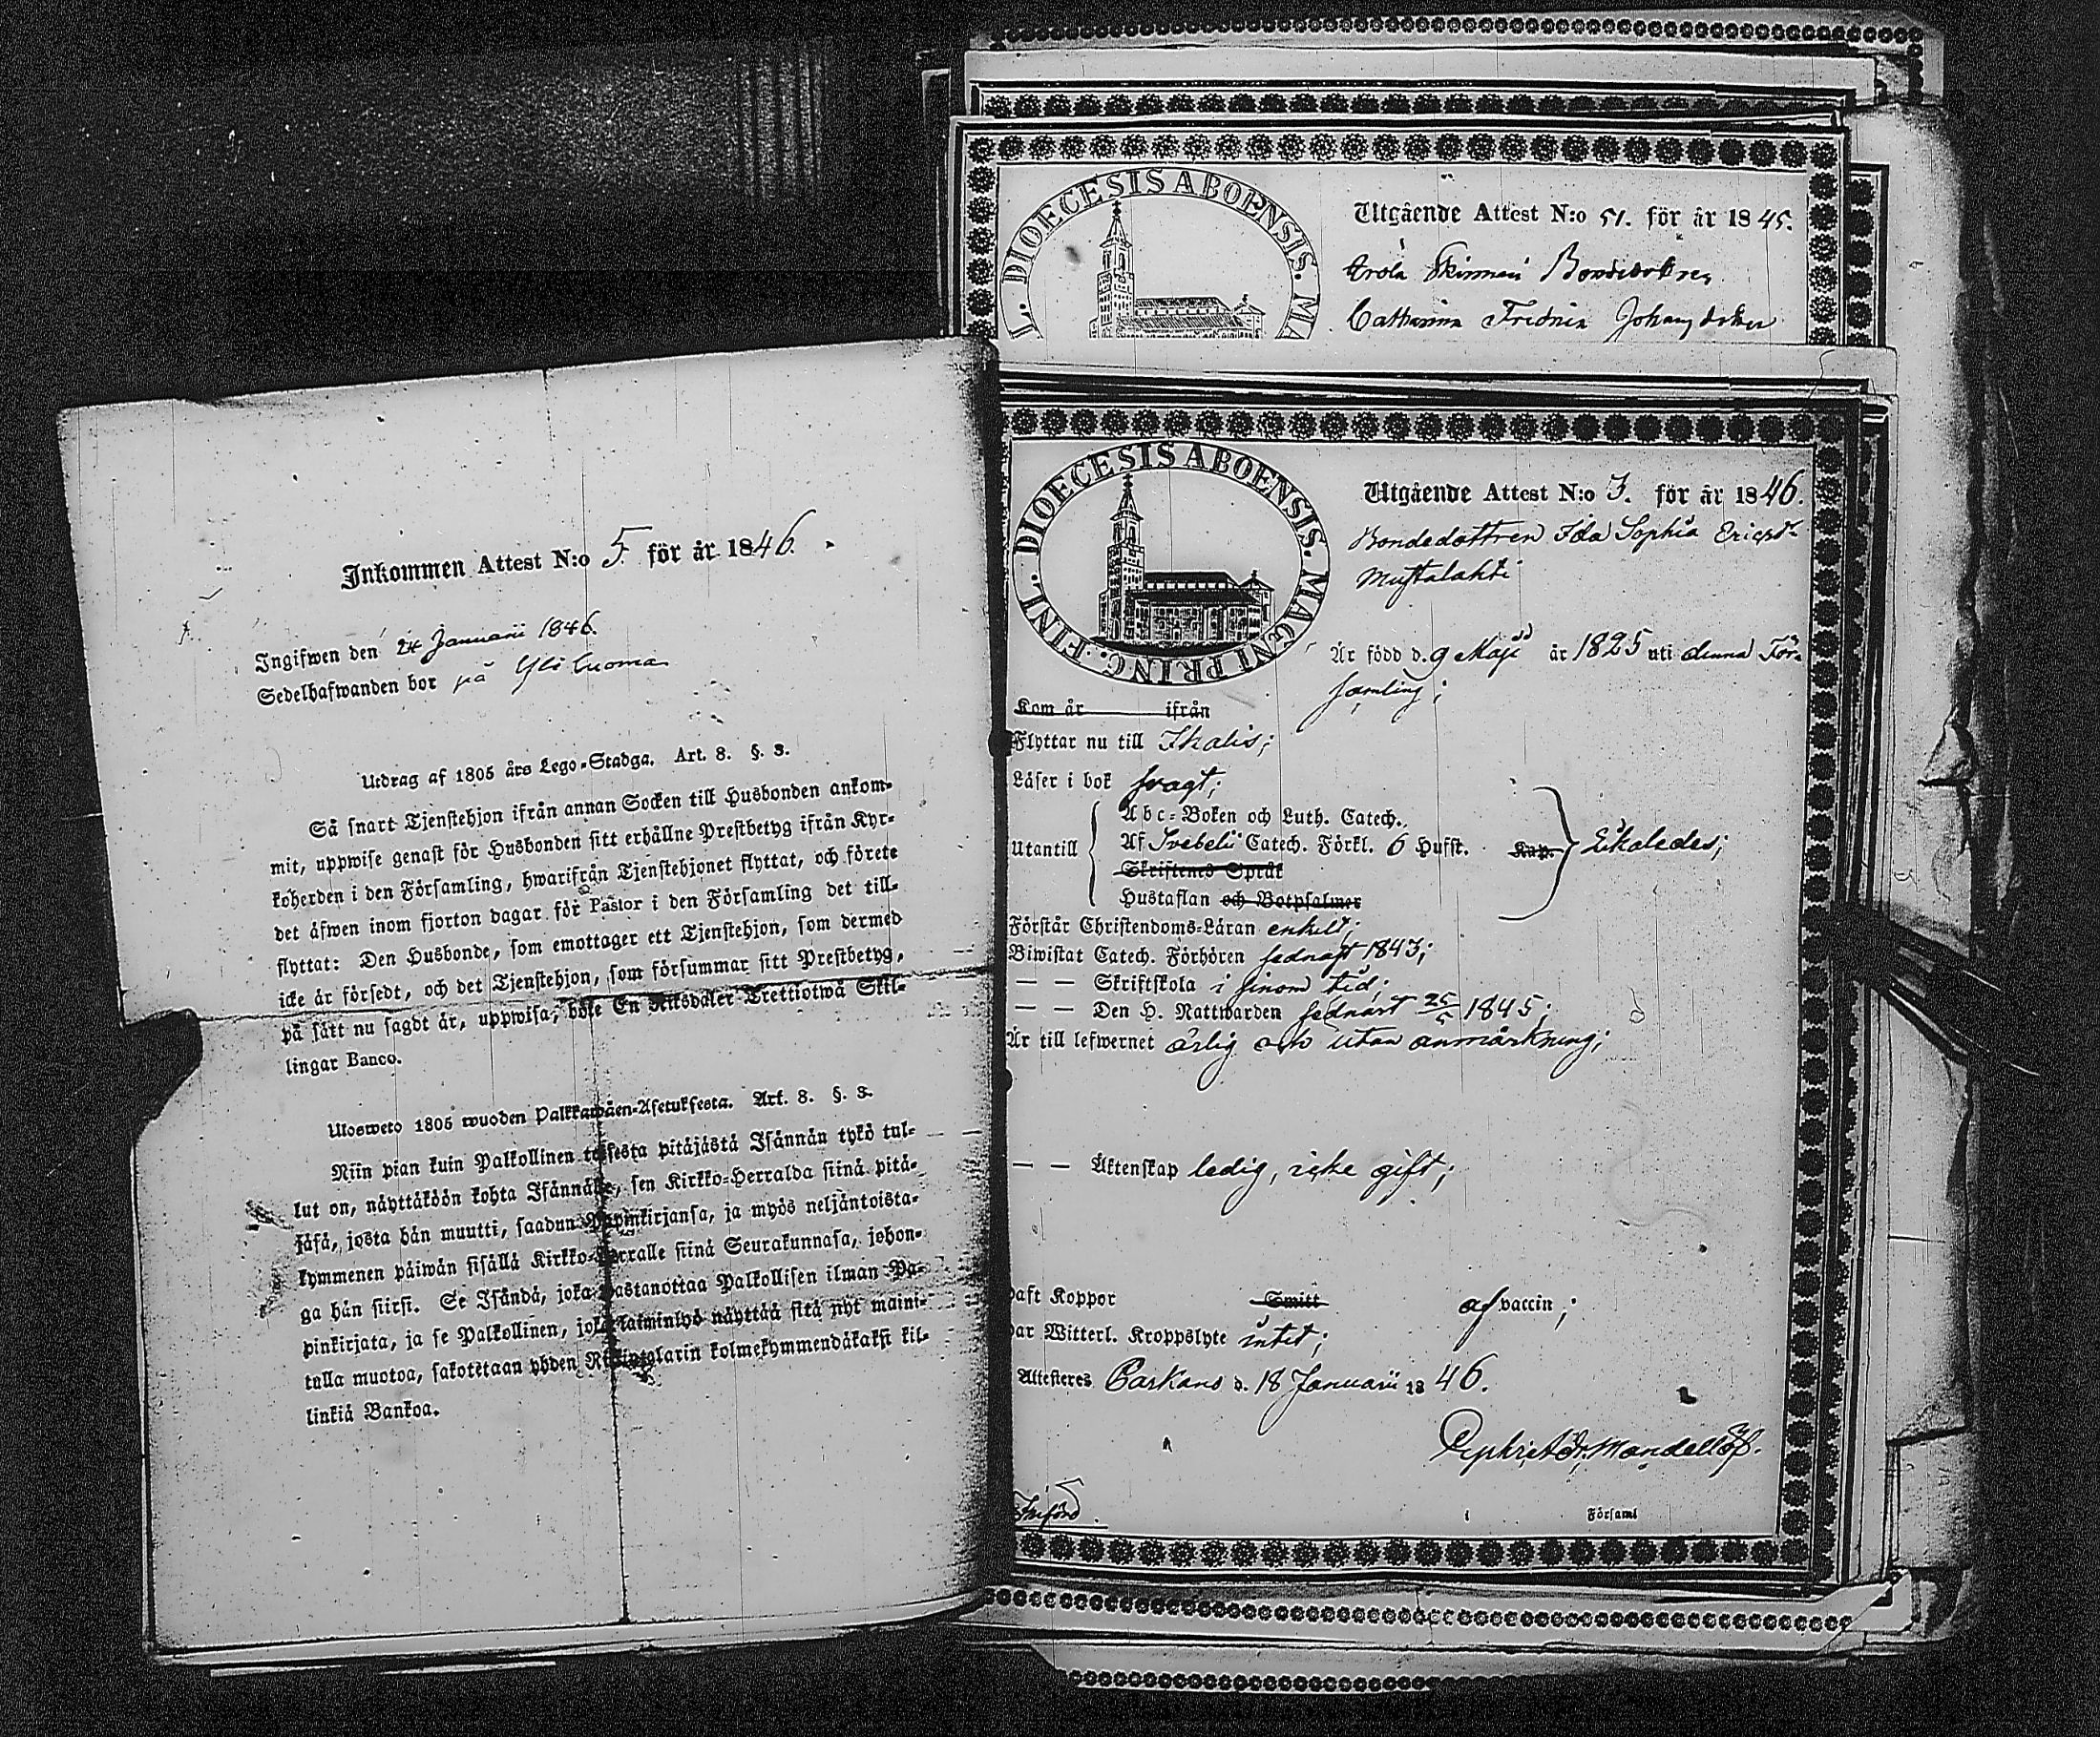 Inkommen Attest N:o 5. för år 1846.
Ingifwen den 24 Januarii 1846.
Sedelhafwanden bor på Yli Luoma
Utdrag af 1805 års Lego-Stadga. Art. 8. §. 3.
Så snart Tjenstehjon ifrån annan Socken till Husbonden ankom-
mit, uppwise genast för Husbonden sitt erhållne Prestbetyg ifrån Kyr-
koherden i den Församling, hwarifrån Tjenstehjonet flyttat, och förete
det äfwen inom fjorton dagar för Pastor i den Församling det till-
flyttat: Den Husbonde, som emottager ett Tjenstehjon, som dermed
icke är försedt, och det Tjenstehjon, som försummar sitt Prestbetyg,
på sätt nu sagdt är, uppwisa, böte En Riksdaler Trettiotwå Skil-
lingar Banco.
Ulosweto 1805 wuoden Palkkawäen-Asetuksesta. Art. 8. §. 3.
Niin pian kuin Palkollinen toisesta pitäjästä Isännän tykö tul-
lut on, näyttäköön kohta Isännälle, sen Kirkko-Herralda siinä pitä-
jäsä, josta hän muutti, saadun Papinkirjansa, ja myös neljäntoista-
kymmenen päiwän sisällä Kirkko-Herralle siinä Seurakunnasa, johon-
ga hän siirsi. Se Isändä, joka wastanottaa Palkollisen ilman Pa-
pinkirjata, ja se Palkollinen, joka laiminlyö näyttää sitä nyt maini-
tulla muotoa, sakotetaan yhden Riksintalarin kolmekymmendäkaksi kil-
linkiä Bankoa.
L. DIOECESIS ABOENSIS. MA
Utgående Attest N:o 51. för år 1845.
Catharina Fredrica Johansdotter
FINL. DIOECESIS ABOENSIS. MAGNI PRINC.
Utgående Attest N:o 3. för år 1846.
Bondedottren Ida Sophia Ericsdr
Mustalahti
Är född d. 9 Maji år 1825 uti denna För-
samling;
Kom år ifrån
Flyttar nu till Ikalis;
Läser i bok svagt;
Utantill
Abc-Boken och Luth. Catech.
Af Svebelii Catech. Förkl. 6 Hufst. Kap.
Skriftenes Språk
Hustaflan och Botpsalmer
Likaledes;
Förstår Christendoms-Läran enkelt;
Biwistat Catech. Förhören sednast 1843;
— — Skriftskola i sinom tid;
— — Den H. Nattwarden sednast 25/5 1845;
Är till lefwernet ärlig och utan anmärkning;
— — Äktenskap ledig, icke gift;
haft Koppor Smitt af vaccin;
har Witterl. Kroppslyte intet;
Attesteres Parkano d. 18 Januarii 1846.
i Församl